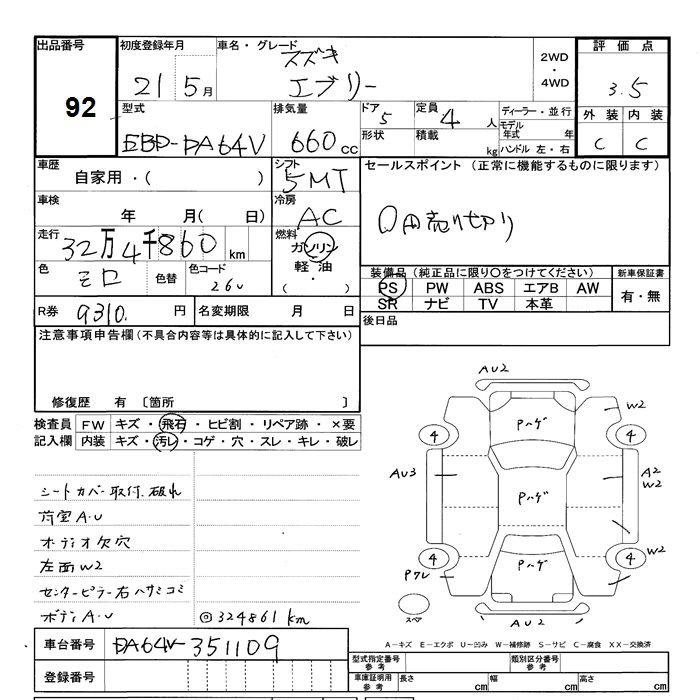 出品番号 初度登録年月 車名・グレード スズキ 2WD・4WD 評価点
92 21 5月 エブリー 3.5
型式 排気量 ドア 5 定員 4人 ディーラー・並行 外装 内装
EBD-DA64V 660cc 形状 積載 kg モデル年式 年 ハンドル 左・右 C C
車歴 自家用・( ) シフト 5MT セールスポイント (正常に機能するものに限ります)
車検 年 月( 日) 冷房 AC 0円売り切り
走行 32万4千860 km 燃料 ガソリン
色 シロ 色替 色コード 26U 軽油 ( ・ ) 装備品(純正品に限り〇をつけてください) 新車保証書
PS PW ABS エアB AW 有・無
SR ナビ TV 本革
R券 9310. 円 名変期限 月 日 後日品
注意事項申告欄(不具合内容等は具体的に記入して下さい)
修復歴 有 〔箇所 〕
検査員 FW キズ・飛石・ヒビ割・リペア跡・×要
記入欄 内装 キズ・汚レ・コゲ・穴・スレ・キレ・破レ
AU2
Pハゲ W2
4 4
AU3 Pハゲ A2
W2
4 4 W2
Pワレ Pハゲ
スペア AU2
シートカバー取付.破れ
荷室A.U
オーディオ欠穴
左面W2
センターピラー右ハサミコミ
ボディA.U ◎324861km
A-キズ E-エクボ U-凹み W-補修跡 S-サビ C-腐食 XX-交換済
車台番号 DA64V-351109
型式指定番号 参考 類別区分番号 参考
登録番号 車庫証明用 参考 長さ cm 幅 cm 高さ cm